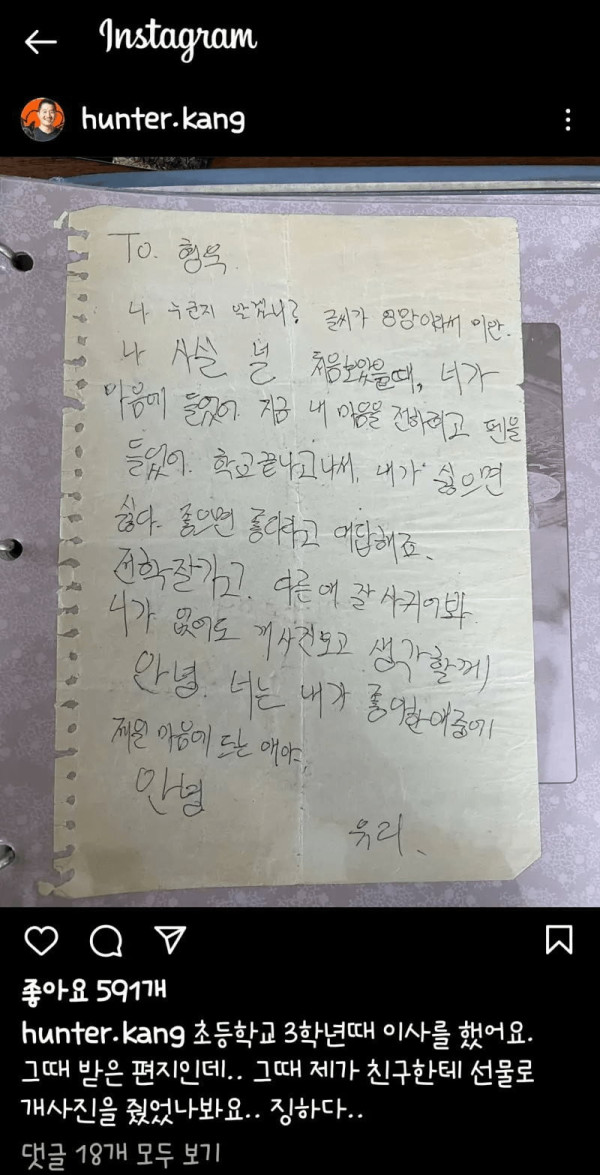 Instagram
hunter.kang
To. 형욱
나 누군지 알겠니? 글씨가 엉망이라서 미안.
나 사실 널 처음보았을때, 너가
마음에 들었어. 지금 내 마음을 전하려고 펜을
들었어. 학교끝나고나서, 내가 싫으면
싫다. 좋으면 좋다라고 대답해죠.
전학잘가고. 다른 애 잘 사귀어봐
너가 없어도 개사진보고 생각할께!
안녕. 너는 내가 좋아한애중에
제일 마음에 드는 애야.
안녕
유리.
좋아요 591개
hunter.kang 초등학교 3학년때 이사를 했어요.
그때 받은 편지인데.. 그때 제가 친구한테 선물로
개사진을 줬었나봐요.. 징하다..
댓글 18개 모두 보기